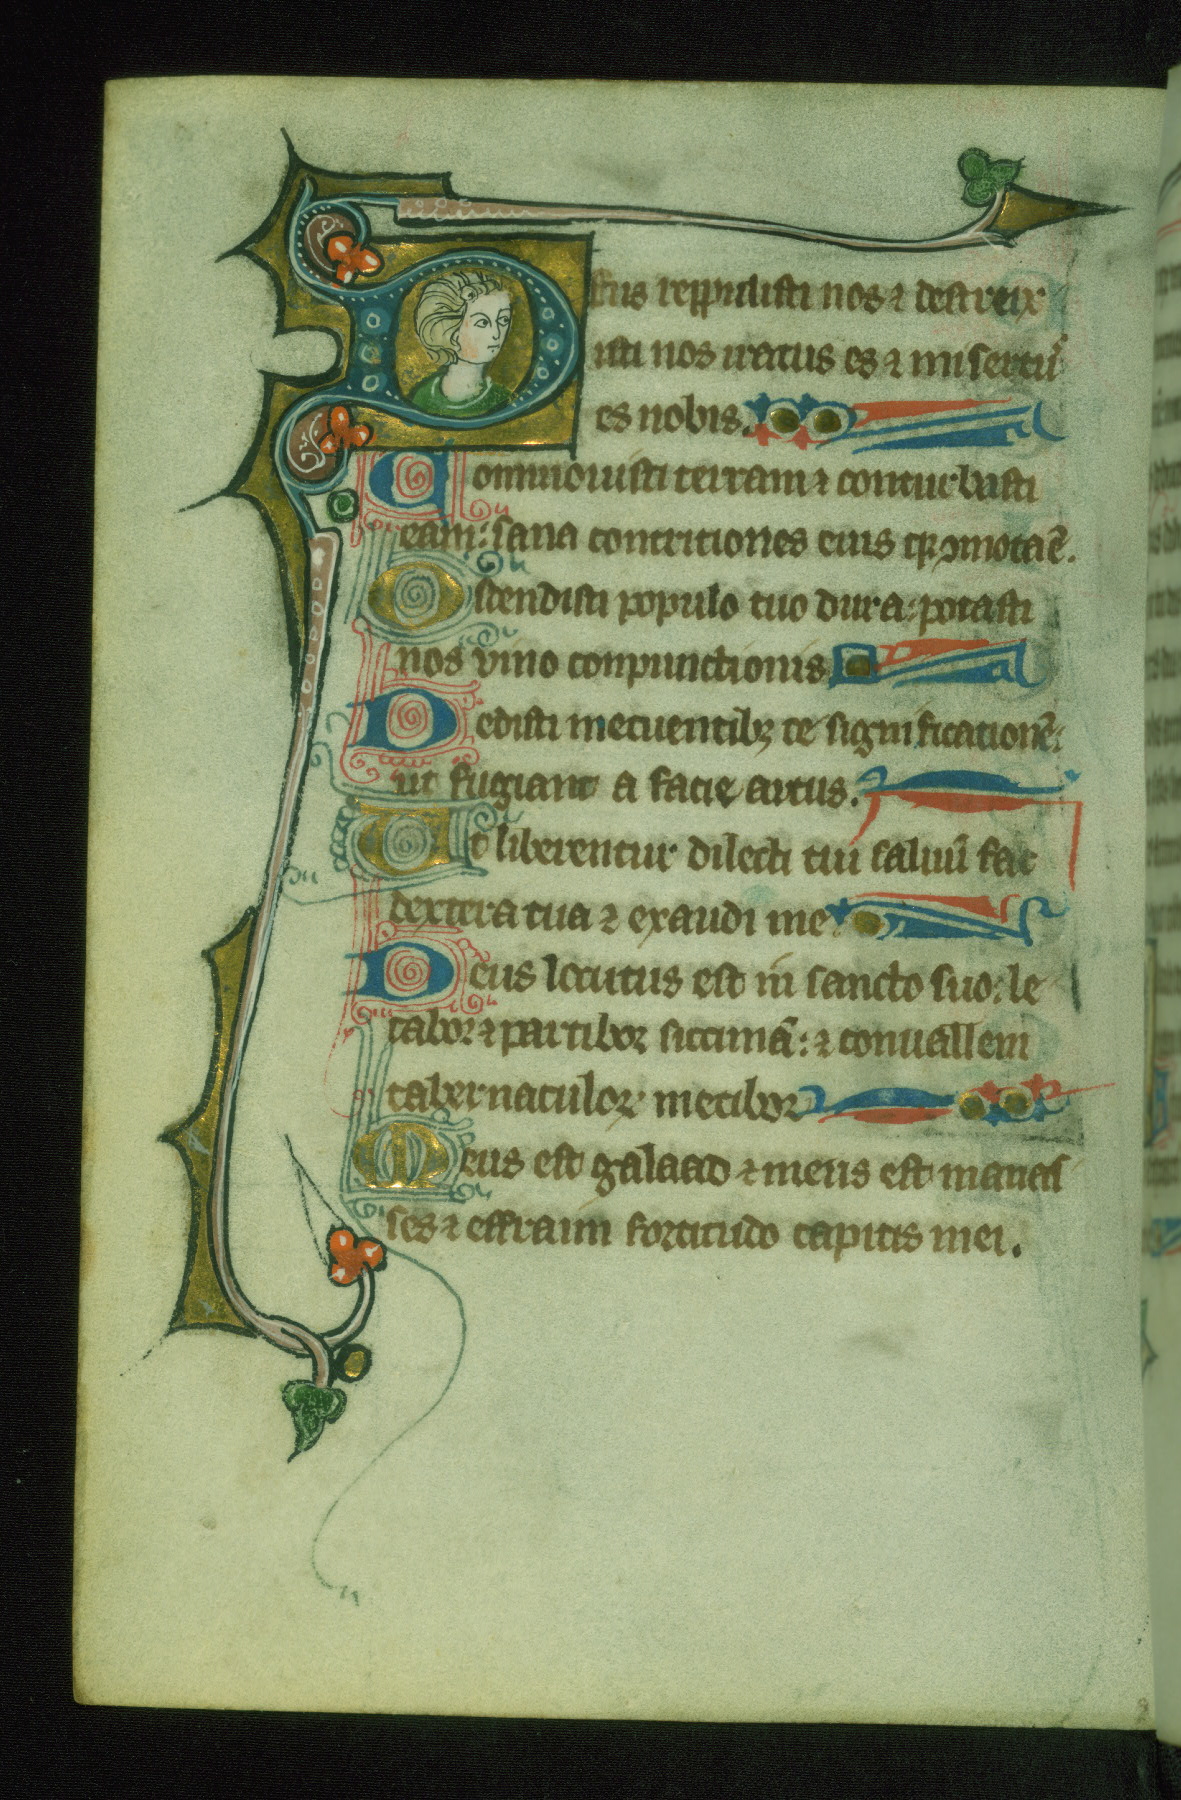 Deus reppulisti nos ⁊ destrux
isti nos iratus es ⁊ misertu᷒
es nobis.
Commouisti terram ⁊ conturbasti
eam: sana contritiones eius qꝛ ꝯmota ē.
Ostendisti populo tuo dura: potasti
nos vino conpunctionis
Dedisti metuentibꝫ te significationē:
ut fugiant a facie arcus.
Vt liberentur dilecti tui saluū fac
dextera tua ⁊ exaudi me
Deus locutus est in sancto suo: le
tabor ⁊ partibor siccimā: ⁊ conuallem
tabernaculoꝝ metibor
Meus est galaad ⁊ meus est manas
ses ⁊ effraim fortitudo capitis mei.